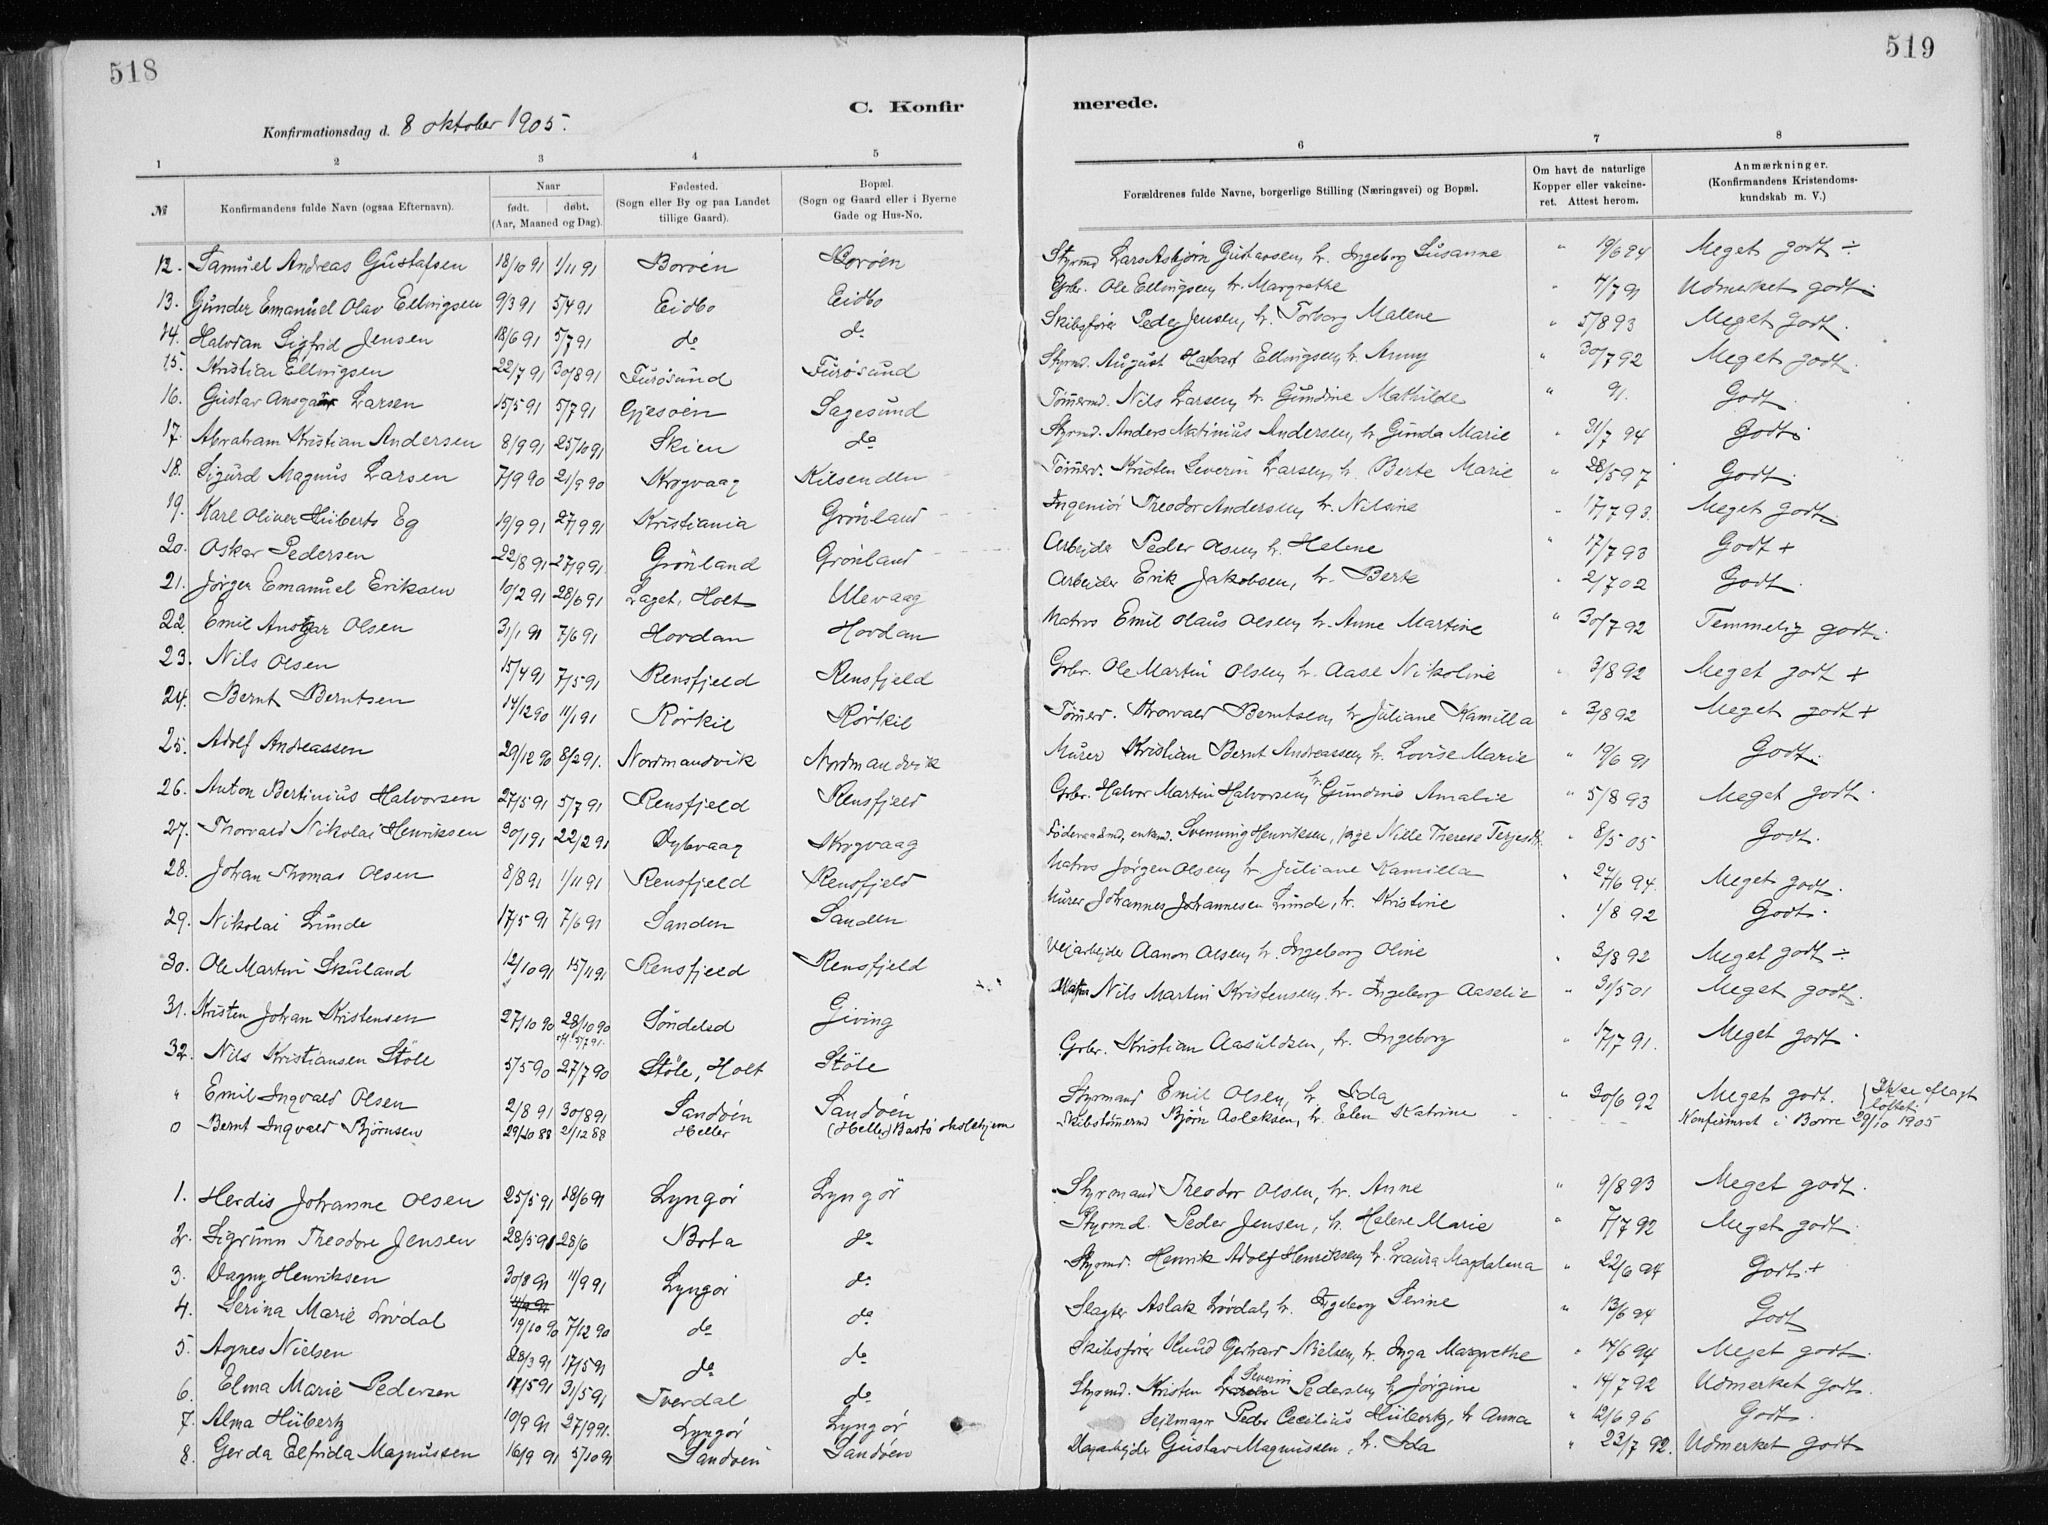 518
519
C. Konfirmerede.
Konfirmationsdag d. 8 oktober 1905.
1 2 3 4 5 6 7 8
№ Konfirmandens fulde Navn (ogsaa Efternavn). Naar født. døbt. (Aar, Maaned og Dag). Fødested. (Sogn eller By og paa Landet tillige Gaard). Bopæl. (Sogn og Gaard eller i Byerne Gade og Hus-No. Forældrenes fulde Navne, borgerlige Stilling (Næringsvei) og Bopæl. Om havt de naturlige Kopper eller vakcineret. Attest herom. Anmærkninger. (Konfirmandens Kristendomskundskab m. V.)
12. Samuel Andreas Gustafsen 18/10 91 1/11 91 Borøen Borøen Styrmd Lars Asbjørn Gustavsen, h. Ingeborg Susanne " 19/6 94 Meget godt ÷
13. Gunder Emanuel Olav Ellingsen 9/3 91 5/4 91 Eidbo Eidbo Grbr. Ole Ellingsen, h. Margrethe " 7/7 91 Udmerket godt.
14. Halvdan Sigfrid Jensen 18/6 91 5/7 91 do do Skibsfører Peder Jensen, h. Torborg Malene " 5/8 93 Meget godt.
15. Kristian Ellingsen 22/7 91 30/8 91 Furøsund Furøsund Styrmd. August Ellingsen, h. Anny " 30/7 92 Meget godt.
16. Gustav Ansgar Larsen 15/5 91 5/7 91 Gjesøen Sagesund Tømmermd. Nils Larsen, h. Gundine Mathilde " 91. Godt.
17. Abraham Kristian Andersen 8/9 91 25/10 91 Skien do Styrmd. Anders Matinius Andersen, h. Gunda Marie " 31/7 94 Godt.
18. Sigurd Magnus Larsen 7/9 90 21/9 90 Krogvaag Kilsenden Tømmerm. Kristen Severin Larsen, h. Berte Marie " 28/5 97 Godt.
19. Karl Oliver Hüberts Eg 19/9 91 27/9 91 Kristiania Grønland Ingeniør Theodor Andersen, h. Nilsine " 17/7 93. Meget godt.
20. Oskar Pedersen 22/8 91 27/9 91. Grønland Grønland Arbejder Peder Olsen, h. Helene " 17/7 93 Godt +
21. Jørgen Emanuel Eriksen 10/2 91 28/6 91 Laget, Holt Ulevaag Arbejder Erik Jakobsen, h. Berte " 2/7 02 Godt.
22. Emil Ansgar Olsen 31/1 91 7/6 91 Hovdan Hovdan Matros Emil Olaus Olsen, h. Anne Martine " 30/7 92 Temmelig godt.
23. Nils Olsen 15/4 91 7/5 91 Rensfjeld Rensfjeld Grbr. Ole Martin Olsen, h. Aase Nikoline " 3/8 92 Meget godt +
24. Bernt Berntsen 14/12 90 11/1 91 Rørkil Rørkil Tømmerm. Torvald Berntsen, h. Juliane Kamilla " 3/8 92 Meget godt +
25. Adolf Andreassen 29/12 90 8/2 91. Nordmandvik Nordmandvik Murer Kristian Bernt Andreassen, h. Lovise Marie " 19/6 91 Godt.
26. Anton Bertinius Halvorsen 27/5 91 5/7 91 Rensfjeld Rensfjeld Grbr. Halvor Martin Halvorsen, h. Gundine Amalie " 5/8 93 Meget godt.
27. Thorvald Nikolai Henriksen 30/1 91 22/2 91 Dybvaag Krogvaag Føderaadsmd, enkmd. Svenning Henriksen, pige Nille Therese Terjesdtr. " 8/5 05 Godt.
28. Johan Thomas Olsen 8/8 91 1/11 91 Rensfjeld Rensfjeld Matros Jørgen Olsen, h. Juliane Kamilla " 27/6 94. Meget godt.
29. Nikolai Lunde 17/5 91 7/6 91 Sanden Sanden Murer Johannes Johannesen Lunde, h. Kristine " 1/8 92 Godt.
30. Ole Martin Skuland 12/10 91 15/11 91 Rensfjeld Rensfjeld Vejarbejder Aanon Olsen, h. Ingeborg Oline " 3/8 92 Meget godt ÷
31. Kristen Johan Kristensen 27/10 90 28/10 90 5/7 91. Søndeled Giving Nils Martin Kristensen, h. Ingeborg Aaselie " 31/5 01 Meget godt.
32. Nils Kristiansen Støle 5/5 90 27/7 90 Støle, Holt Støle Grbr. Kristian Aasuldsen, h. Ingeborg " 17/7 91. Meget godt.
" Emil Ingvald Olsen 2/8 91 30/8 91 Sandøen Sandøen Styrmand Emil Olsen, h. Ida " 30/6 92 Meget godt. Ikke aflagt løftet.
0 Bernt Ingvald Bjørnsen 29/10 88 2/12 88 Heller (Heller) Bastø skolehjem Skibstømmermd Bjørn Aslaksen, h. Elen Katrine Konfirmeret i Borre 29/10 1905
1. Herdis Johanne Olsen 25/5 91 28/6 91 Lyngør Lyngør Styrmand Theodor Olsen, h. Anne " 9/8 93 Meget godt.
2. Sigrunn Theodore Jensen 28/5 91 28/6 Bota do Styrmd. Peder Jensen, h. Helene Marie " 7/7 92 Meget godt.
3. Dagny Henriksen 30/8 91 11/9 91 Lyngør do Styrmd. Henrik Adolf Henriksen, h. Laura Magdalena " 22/6 94 Godt +
4. Serina Marie Løvdal 19/10 90 7/12 90 do do Slagter Aslak Løvdal, h. Ingeborg Serine " 13/6 94 Godt
5. Agnes Nielsen 28/3 91 17/5 91 do do Skibsfører Knud Gerhard Nielsen, h. Inga Margrethe " 14/6 94 Meget godt.
6. Elma Marie Pedersen 17/5 91 31/5 91 Tverdal do Styrmd. Kristen Severin Pedersen, h. Jørgine " 14/7 92 Udmerket godt.
7. Alma Hübertz 10/9 91 27/9 91. Lyngør Lyngør Sejlmager Peder Cecilius Hübertz, h. Anna " 12/6 96 Godt.
8. Gerda Elfrida Magnussen 16/9 91 5/10 91 Sandøen Sandøen Gustav Magnussen, h. Ida " 23/7 92. Udmerket godt